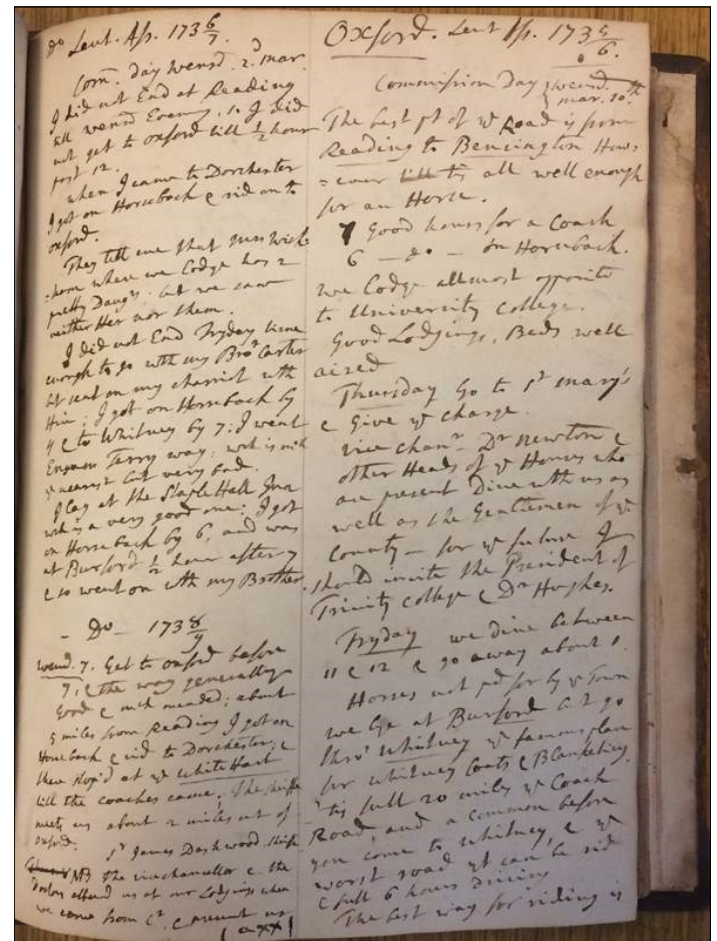 Do Lent. Ass. 173 6/7.
Com. day wensd. 2.d mar.
I did not End at Reading
till wensd Evening. 10. I did
not get to oxford till 1/2 hour
past 12.
when I came to Dorchester
I got on Horseback & rid on to
oxford.
They tell me that Mrs Wick-
=ham where we Lodge has 2
pretty Daugrs. but we saw
neither Her nor them.
I did not End Fryday time
enough to go wth my Bror Carter
but sent on my chariot wth
Him; I got on Horseback by
4 & to Whitney by 7; I went
Ensham Ferry way: wch is much
ye nearest but very bad.
I lay at the Staple Hall Inn
wch is a very good one; I got
on Horseback by 6, and was
at Burford 1/2 hour after 7
& so went on wth my Brother.
- Do - 173 8/9
wensd. 7. Get to oxford before
7, & the way generally
Good & much mended; about
5 miles from Reading I got on
Horseback & rid to Dorchester; &
then stop'd at ye White Hart
till the coaches came; The sheriffe
meets us about 2 miles out of
oxford.
Sr James Dashwood shife
NB the vicechancellor & the
Doctors attend us at our Lodgings when
we come from Ct. & present us
Oxford. Lent Ass. 173 5/6.
Commission Day wensd.
mar. 10th
The best pt of ye Road is from
Reading to Bencington How=
=ever all well enough
for an Horse.
7 Good hours for a Coach
6 - do - on Horseback.
we Lodge allmost opposite
to University College.
Good Lodgings, Beds well
aired
Thursday Go to St mary's
& Give ye charge.
vice chanr Dr Newton &
other Heads of ye Houses who
are present Dine wth us as
well as the Gentlemen of ye
County - for ye future I
should invite the President of
Trinity College & Dr Hughes.
Fryday we dine between
11 & 12 & go away about 1.
Horses not pd for by ye Town
we Lye at Burford but go
thro' Whitney ye famous place
for whitney Coats & Blanketing
'tis full 20 miles ye Coach
Road, and a common before
you come to Whitney, & ye
worst road yt can be rid
& full 6 hours driving
The best way for riding is